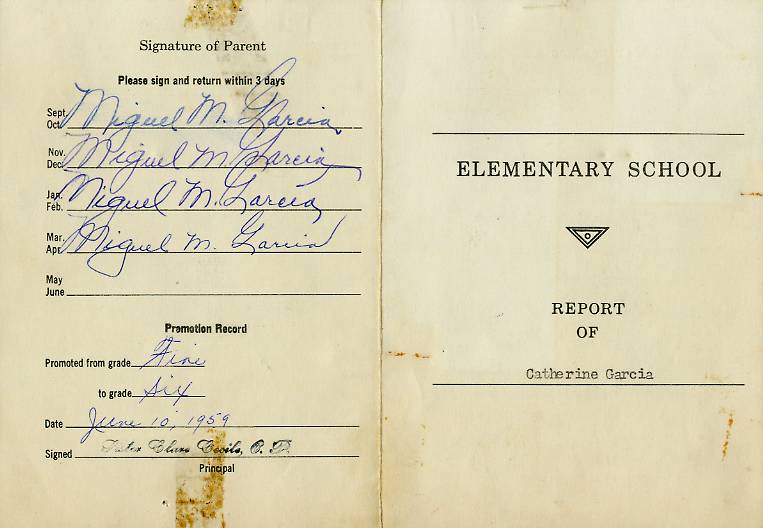 Signature of Parent
Please sign and return within 3 days
Sept.
Oct. Miguel M. Garcia
Nov.
Dec. Miguel M. Garcia
Jan.
Feb. Miguel M. Garcia
Mar.
Apr. Miguel M. Garcia
May
June
Promotion Record
Promoted from grade Five
to grade Six
Date June 10, 1959
Signed Sister Clare Cecile, O. P.
Principal
ELEMENTARY SCHOOL
REPORT
OF
Catherine Garcia